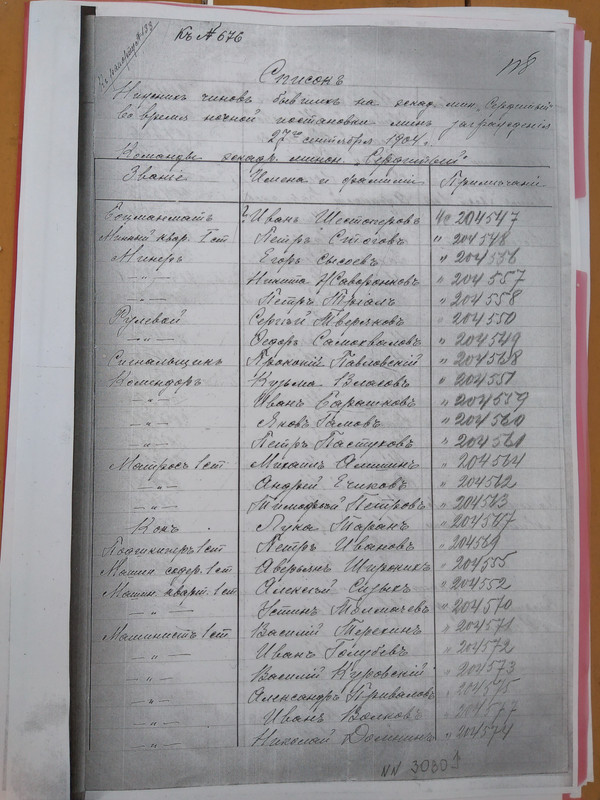 Къ № 676
118
Списокъ
Нижнихъ чиновъ бывшихъ на эскад. мин. Сердитый
во время ночной постановки минъ заграждения
27го сентября 1904 г.
Команды эскадр. минон. "Сердитый"
Званіе Имена и фамиліи Примѣчаніе
Боцманматъ ? Иванъ Шестоперовъ 4е 204547
Минный квар. 1 ст. Петръ Стоговъ " 204548
Минеръ Егоръ Сысоевъ " 204556
— " — Никита Жаворонковъ " 204557
— " — Петръ Тріанъ " 204558
Рулевой Сергѣй Тверяковъ " 204550
— " — Федоръ Самохваловъ " 204549
Сигнальщикъ Прокопій Павловскій " 204568
Комендоръ Кузьма Власовъ " 204551
— " — Иванъ Барашковъ " 204559
— " — Яковъ Гамовъ " 204560
— " — Петръ Пастуховъ " 204561
Матросъ 1 ст Михаилъ " 204564
— " — Андрей Ечиковъ " 204562
— " — Тимофей Петровъ " 204563
Кокъ Лука Таранъ " 204567
Подшкиперъ 1 ст Петръ Ивановъ " 204569
Машин. содер. 1 ст Аверьянъ Широкихъ " 204555
Машин. кварт. 1 ст Алексѣй Сизыхъ " 204552
— " — Устинъ Толмачевъ " 204570
Машинистъ 1 ст Василій Терехинъ " 204571
— " — Иванъ Голубевъ " 204572
— " — Василій Куровскій " 204573
— " — Александръ Приваловъ " 204575
— " — Иванъ Волковъ " 204577
— " — Николай " 204574
NN 3030